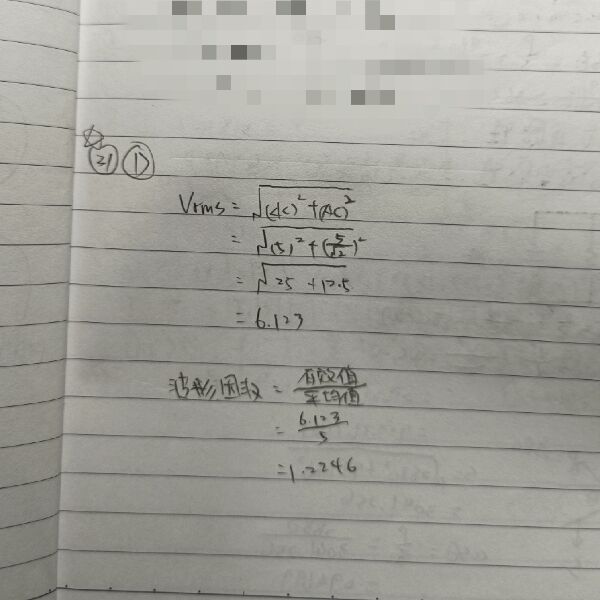 ☆
(21) (1)
Vrms = √(dc)² + (AC)²
= √(5)² + (5/√2)²
= √25 + 12.5
= 6.123
波形因数 = 有效值/平均值
= 6.123/5
= 1.2246